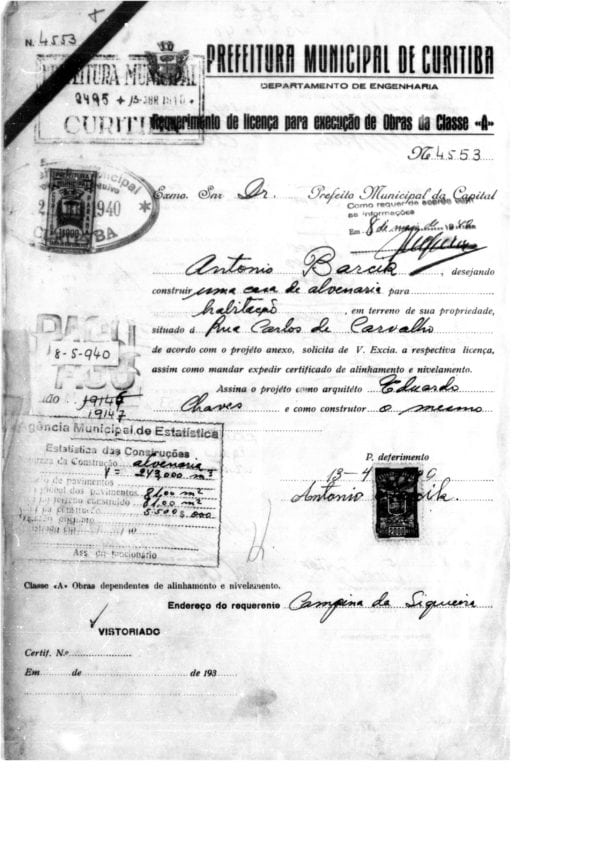 N. 4553
PREFEITURA MUNICIPAL DE CURITIBA
DEPARTAMENTO DE ENGENHARIA
PREFEITURA MUNICIPAL
2495
CURITIBA
Requerimento de licença para execução de Obras da Classe «A»
Nº 4553
1940
Exmo. Snr. Dr. Prefeito Municipal da Capital
Como requer
as informações
Em 8 de maio de
Antonio Barcik, desejando
construir uma casa de alvenaria para
habitação, em terreno de sua propriedade,
situado á Rua Carlos de Carvalho
de acordo com o projéto anexo, solicita de V. Excia. a respectiva licença,
assim como mandar expedir certificado de alinhamento e nivelamento.
Assina o projéto como arquitéto Eduardo
Chaves e como construtor o mesmo
8-5-940
19146
19147
Agência Municipal de Estatística
Estatística das Construções
da Construção alvenaria
V = 243,000 m³
de pavimentos
dos pavimentos 81,00 m²
terreno construido 81,00 m²
Ass. do funcionario
P. deferimento
13-4
Antonio
Classe «A» Obras dependentes de alinhamento e nivelamento.
Endereço do requerente Campina da Siqueira
VISTORIADO
Certif. N.º
Em de de 193